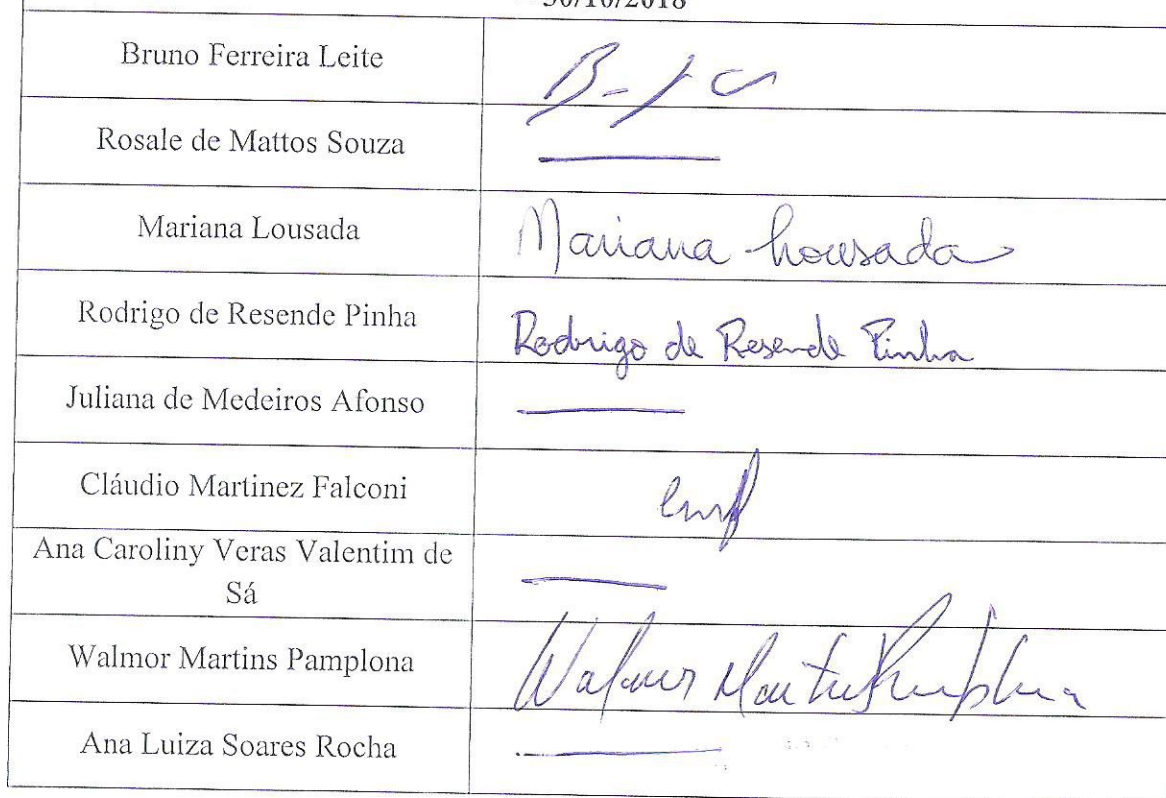 30/10/2018
Bruno Ferreira Leite
Rosale de Mattos Souza
Mariana Lousada
Mariana Lousada
Rodrigo de Resende Pinha
Rodrigo de Resende Pinha
Juliana de Medeiros Afonso
Cláudio Martinez Falconi
Ana Caroliny Veras Valentim de
Sá
Walmor Martins Pamplona
Walmor Martins Pamplona
Ana Luiza Soares Rocha